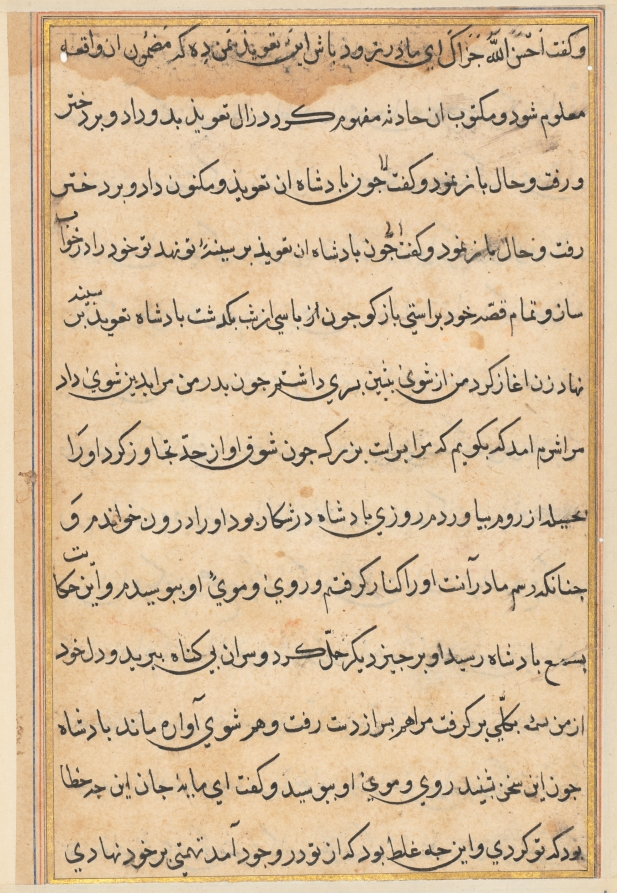 و گفت احسن الله جزاک ای مادر زود باش این تعویذ بمن ده که مضمون ان واقعه
معلوم شود و مکتوب ان حادثه مفهوم کردد زال تعویذ بدو داد و بر دختر
و رفت و حال باز نمود و کفت جون بادشاه ان تعویذ و مکنون داد و بر دختر
رفت و حال باز نمود و کفت جون بادشاه ان تعویذ بر سینهٔ تو نهد تو خود را در خواب
ساز و تمام قصه خود براستی باز کو جون از باسی از شب بکذشت بادشاه تعویذ بر سینه
نهاد زن اغاز کرد من از شوی بیشین بسری داشتم جون بدر من مرا بدین شوی داد
مرا شرم امد که بکویم که مرا بسر است بزرک جون شوق او از حد تجاوز کرد او را
بحیله از روم بیاوردم روزی بادشاه در شکار بود او را درون خواندم و
جنانکه رسم مادرانست او را کنار کرفتم و روی و موی او ببوسیدم و این حکایت
بسمع بادشاه رسید او بر جیز دیکر حمل کرد و سر ان بی کناه ببرید و دل خود
از من بکلی بر کرفت مرا هم بسر از دست رفت و هم شوی آواره ماند بادشاه
جون این سخن شنید روی و موی او ببوسید و کفت ای مایهٔ جان این جه خطا
بود که تو کردی و این جه غلط بود که از تو در وجود آمد تهمتی بر خود نهادی